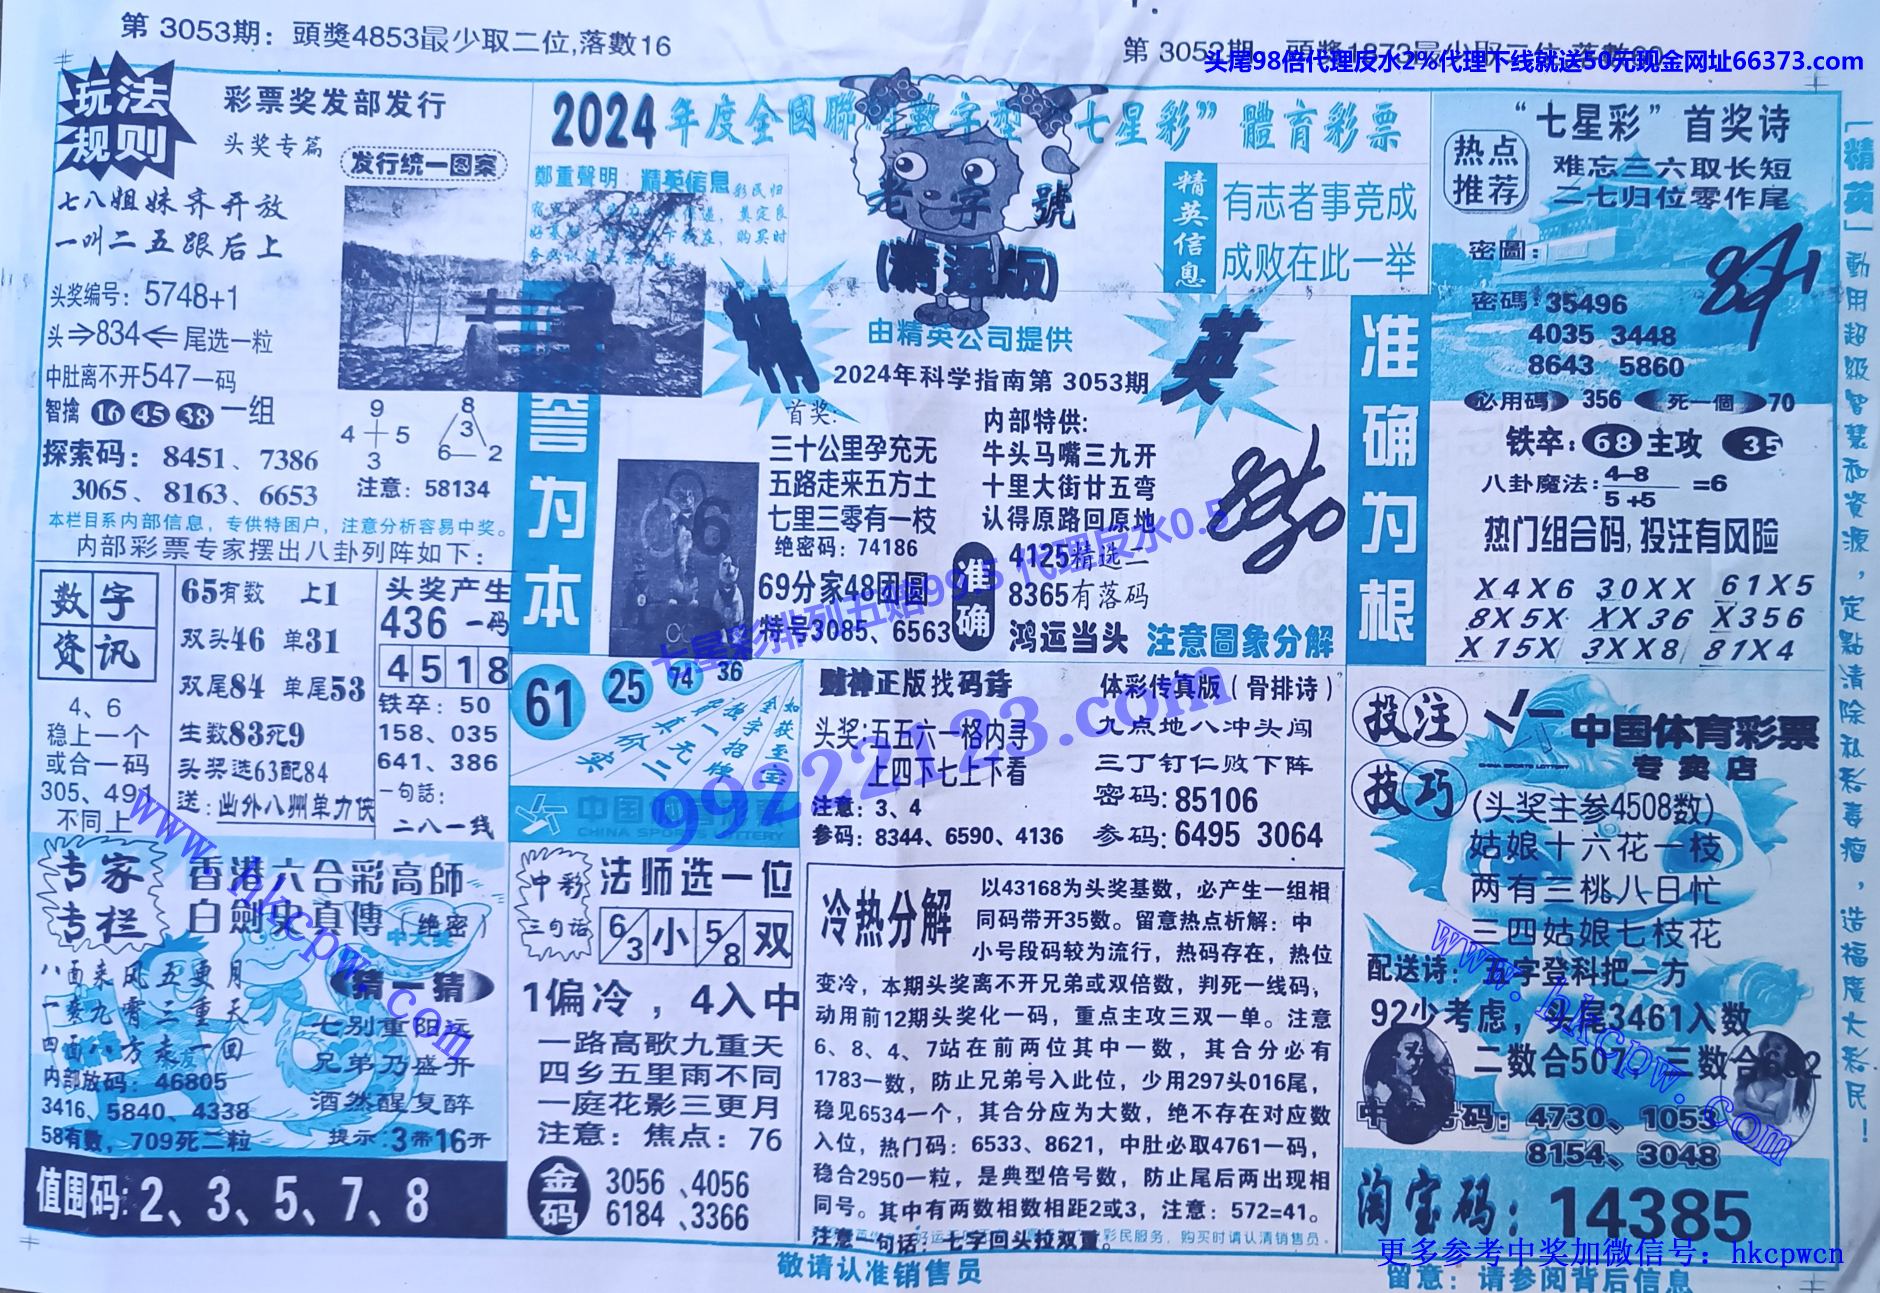 第 3053期：頭獎4853最少取二位,落數16
第 3052期：頭獎1873最少取二位,落數
头尾98倍代理反水2%代理下线就送50元现金网址66373.com
玩法
规则
彩票奖发部发行
头奖专篇
发行统一图案
七八姐妹齐开放
一叫二五跟后上
头奖编号：5748+1
头⇒834⇐尾选一粒
中肚离不开547一码
智擒 16 45 38 一组
探索码：8451、7386
3065、8163、6653
9
4 5
3
8
3
6 2
注意：58134
本栏目系内部信息，专供特困户，注意分析容易中奖。
内部彩票专家摆出八卦列阵如下：
2024年度全國聯 數字型“七星彩”體育彩票
鄭重聲明：精英信息
老字號
(精选版)
精英
由精英公司提供
2024年科学指南第 3053期
精英信息
有志者事竞成
成败在此一举
誉为本
首奖：
三十公里孕充无
五路走来五方土
七里三零有一枝
绝密码：74186
69分家48团圆
特号3085、6563
内部特供：
牛头马嘴三九开
十里大街廿五弯
认得原路回原地
准确
4125精选二
8365有落码
鸿运当头 注意圖象分解
准确为根
“七星彩”首奖诗
热点
推荐
难忘三六取长短
二七归位零作尾
密圖：
密碼：35496
4035 3448
8643 5860
必用碼 356 死一個 70
铁卒：68 主攻 35
八卦魔法：4-8
5+5 =6
热门组合码,投注有风险
X4X6 30XX 61X5
8X5X XX36 X356
X15X 3XX8 81X4
[精英]動用超级智慧和資源，定點清除私彩毒瘤，造福廣大彩民！
数字
资讯
4、6
稳上一个
或合一码
305、491
不同上
65有数 上1
双头46 单31
双尾84 单尾53
生数83死9
头奖选63配84
送：出外八州单力侠
头奖产生
436一码
4518
铁卒：50
158、035
641、386
一句話：
二八一线
61
25
74
36
如获至宝
金字招牌
独一无二
真价实
中国
CHINA SPORTS LOTTERY
财神正版找码诗
头奖：五五六一格内寻
上四下七上下看
注意：3、4
参码：8344、6590、4136
体彩传真版（骨排诗）
九点地八冲头闯
三丁钉仁败下阵
密码：85106
参码：6495 3064
七星彩排列五赔99.5 代理反水0.5
99222123.com
专家
专栏
香港六合彩高師
白劍史真傳（绝密）
八面来风五更月
一麦九霄三重天
四面八方走一回
内部放码：46805
3416、5840、4338
58有数，709死二粒
中大奖
猜一猜
七别重阳远
兄弟乃盛开
酒然醒复醉
提示：3带16开
值围码：2、3、5、7、8
中彩
三句话
法师选一位
6/3 小 5/8 双
1偏冷，4入中
一路高歌九重天
四乡五里雨不同
一庭花影三更月
注意：焦点：76
金码
3056、4056
6184、3366
冷热分解
以43168为头奖基数，必产生一组相
同码带开35数。留意热点析解：中
小号段码较为流行，热码存在，热位
变冷，本期头奖离不开兄弟或双倍数，判死一线码，
动用前12期头奖化一码，重点主攻三双一单。注意
6、8、4、7站在前两位其中一数，其合分必有
1783一数，防止兄弟号入此位，少用297头016尾，
稳见6534一个，其合分应为大数，绝不存在对应数
入位，热门码：6533、8621，中肚必取4761一码，
稳合2950一粒，是典型倍号数，防止尾后两出现相
同号。其中有两数相数相距2或3，注意：572=41。
注意一句话：七字回头拉双重。
彩民服务，购买时请认清销售员。
敬请认准销售员
投注
技巧
中国体育彩票
CHINA SPORTS LOTTERY
专卖店
(头奖主参4508数)
姑娘十六花一枝
两有三桃八日忙
三四姑娘七枝花
配送诗：五字登科把一方
92少考虑，头尾3461入数
二数合507，三数合632
号码：4730、1053
8154、3048
淘宝码：14385
更多参考中奖加微信号：hkcpwcn
留意：请参阅背后信息
www.hkcpw.com
www.hkcpw.com